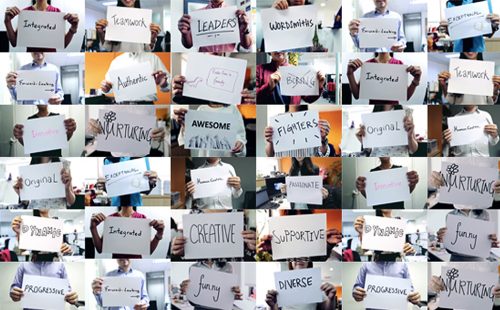 Integrated
Teamwork
LEADERS
WORDSMITHS
Forward-Looking
Exceptional
Forward-Looking
Authentic
BORING
Integrated
Teamwork
Innovative
NURTURING
AWESOME
FIGHTERS
Original
Human Centric
Original
Exceptional
Human Centric
PASSIONATE
Innovative
NURTURING
DYNAMIC
Integrated
CREATIVE
SUPPORTIVE
DYNAMIC
funny
PROGRESSIVE
Forward-Looking
funny
DIVERSE
PROGRESSIVE
Forward-Looking
NURTURING